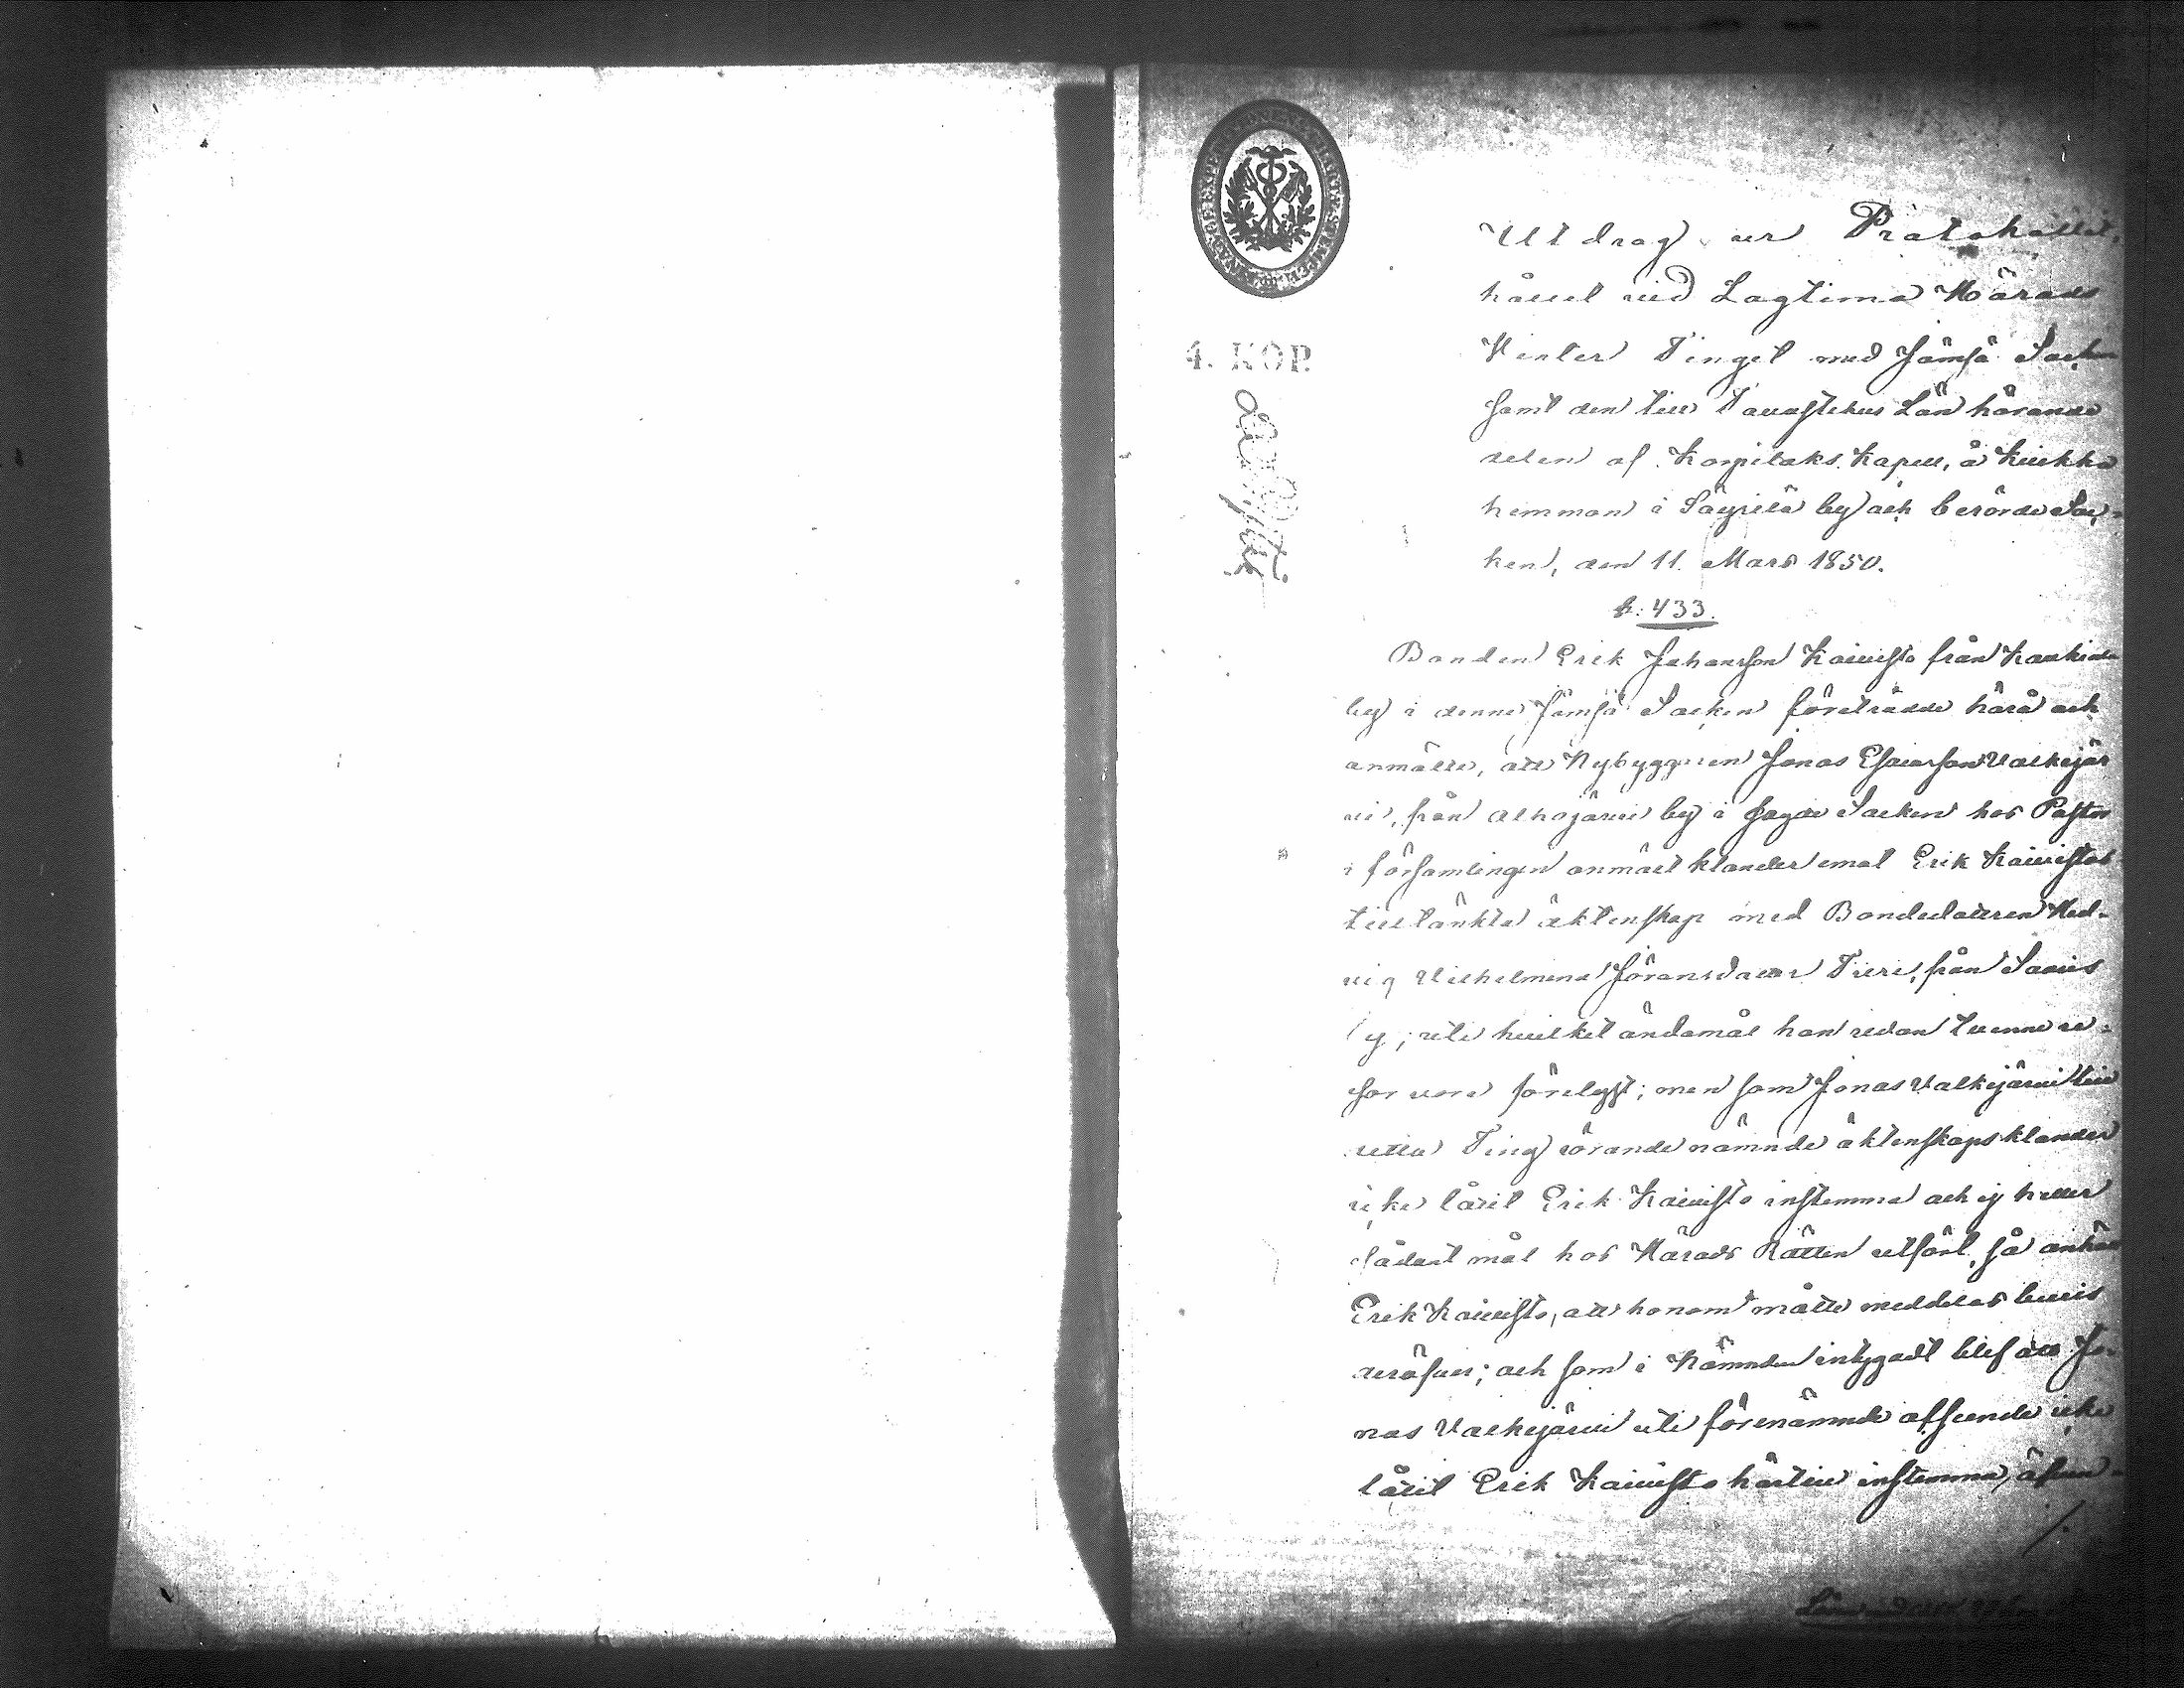 4. KOP.
Utdrag ur Protokollet,
hållet vid Lagtima Härads
Vinter Tinget med Jämsä Sochn
samt den till Tavastehus Län hörande
delen af Korpilaks Kapell, å Kuikka
hemman i Säyrilä by och berörde Soc-
ken, den 11. Mars 1850.
§: 433.
Bonden Erik Johansson Koivisto från Kaukiala
by i denne Jämsä Socken företrädde härå och
anmälte, att Nybyggaren Jonas Esaiasson Valkejär
vi, från Alhojärvi by i sagde Socken hos Pastor
i församlingen anmält klander emot Erik Koivistos
tilltänkta äktenskap med Bondedottren Hed-
vig Vilhelmina Jöransdotter Tiiri, från Saaris
by; uti hvilket ändamål han redan tvenne re-
sor vore förelyst; men som Jonas Valkejärvi till
detta Ting rörande nämnde äktenskapsklander
icke låtit Erik Koivisto instemma och ej heller
sådant mål hos Härads Rätten utfört, så anhöll
Erik Koivisto, att honom måtte meddelas bevis
deröfver; och som i Nämnden intygadt blef att Jo-
nas Valkejärvi uti förenämnde afseende icke
låtit Erik Koivisto härtill instemma, äfven-
./.